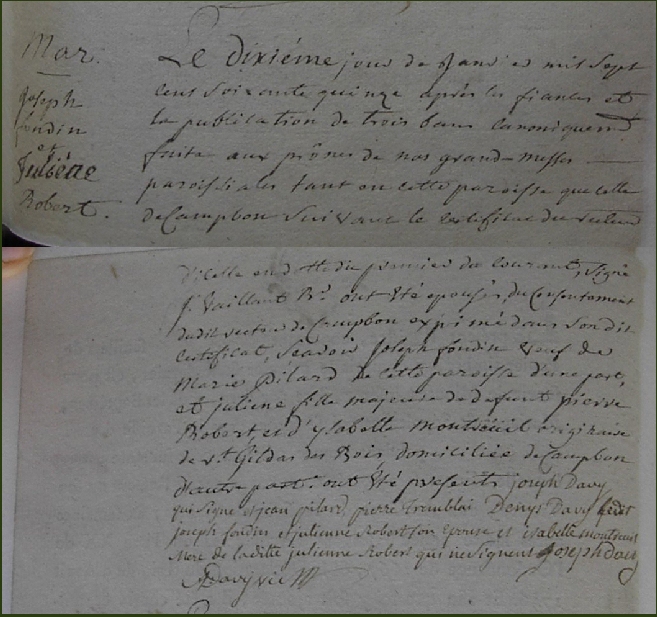 Mar.
Joseph
fondin
et
Juliéne
Robert.
Le dixiéme jour de Janvier mil sept
cent soixante quinze après les fiances et
la publication de trois bans canoniquemt
faite aux prônes de nos grand-messes
paroissiales tant en cette paroisse que celle
de Campbon suivant le certificat du recteur
d'icelle en datte du premier du courant, signé
f. Vaillant ont été epousés, du consentement
dudit recteur de Campbon exprimé dans son dit
certificat, Scavoir Joseph fondin veuf de
Marie Pilard de cette paroisse d'une part,
et juliene fille majeure de defunt pierre
Robert, et d'ysabelle montreüil originaire
de st. Gildas des Bois domiciliée de Campbon
d'autre part. ont été presents joseph Davy
qui signe et jean pilard, pierre Tremblai Denys Davy ledit
joseph fondin et julienne Robert son epouse et isabelle montreuil
Mere de laditte julienne Robert qui ne signent Joseph davy
Davy vic